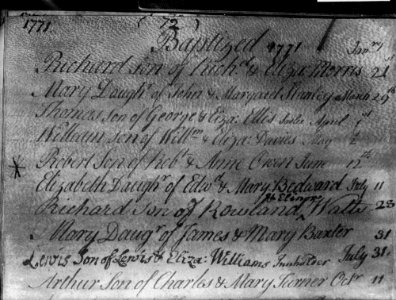 1771 (72)
Baptized 1771 Jan.y
Richard Son of Rich.d & Eliza: Morris 21
Mary Daugh.r of John & Margaret Stanley March 29
Thomas Son of George & Eliza: Ellis April 1
William Son of Will.m & Eliza: Davies May 2
Robert Son of Rob.t & Anne Owen June 12
Elizabeth Daugh.r of Edw.d & Mary Bedward July 11
Richard Son of Rowland & Elenor Watts 28
Mary Daug.r of James & Mary Baxter 31
Lewis Son of Lewis & Eliza: Williams July 31
Arthur Son of Charles & Mary Turner Oct.r 11